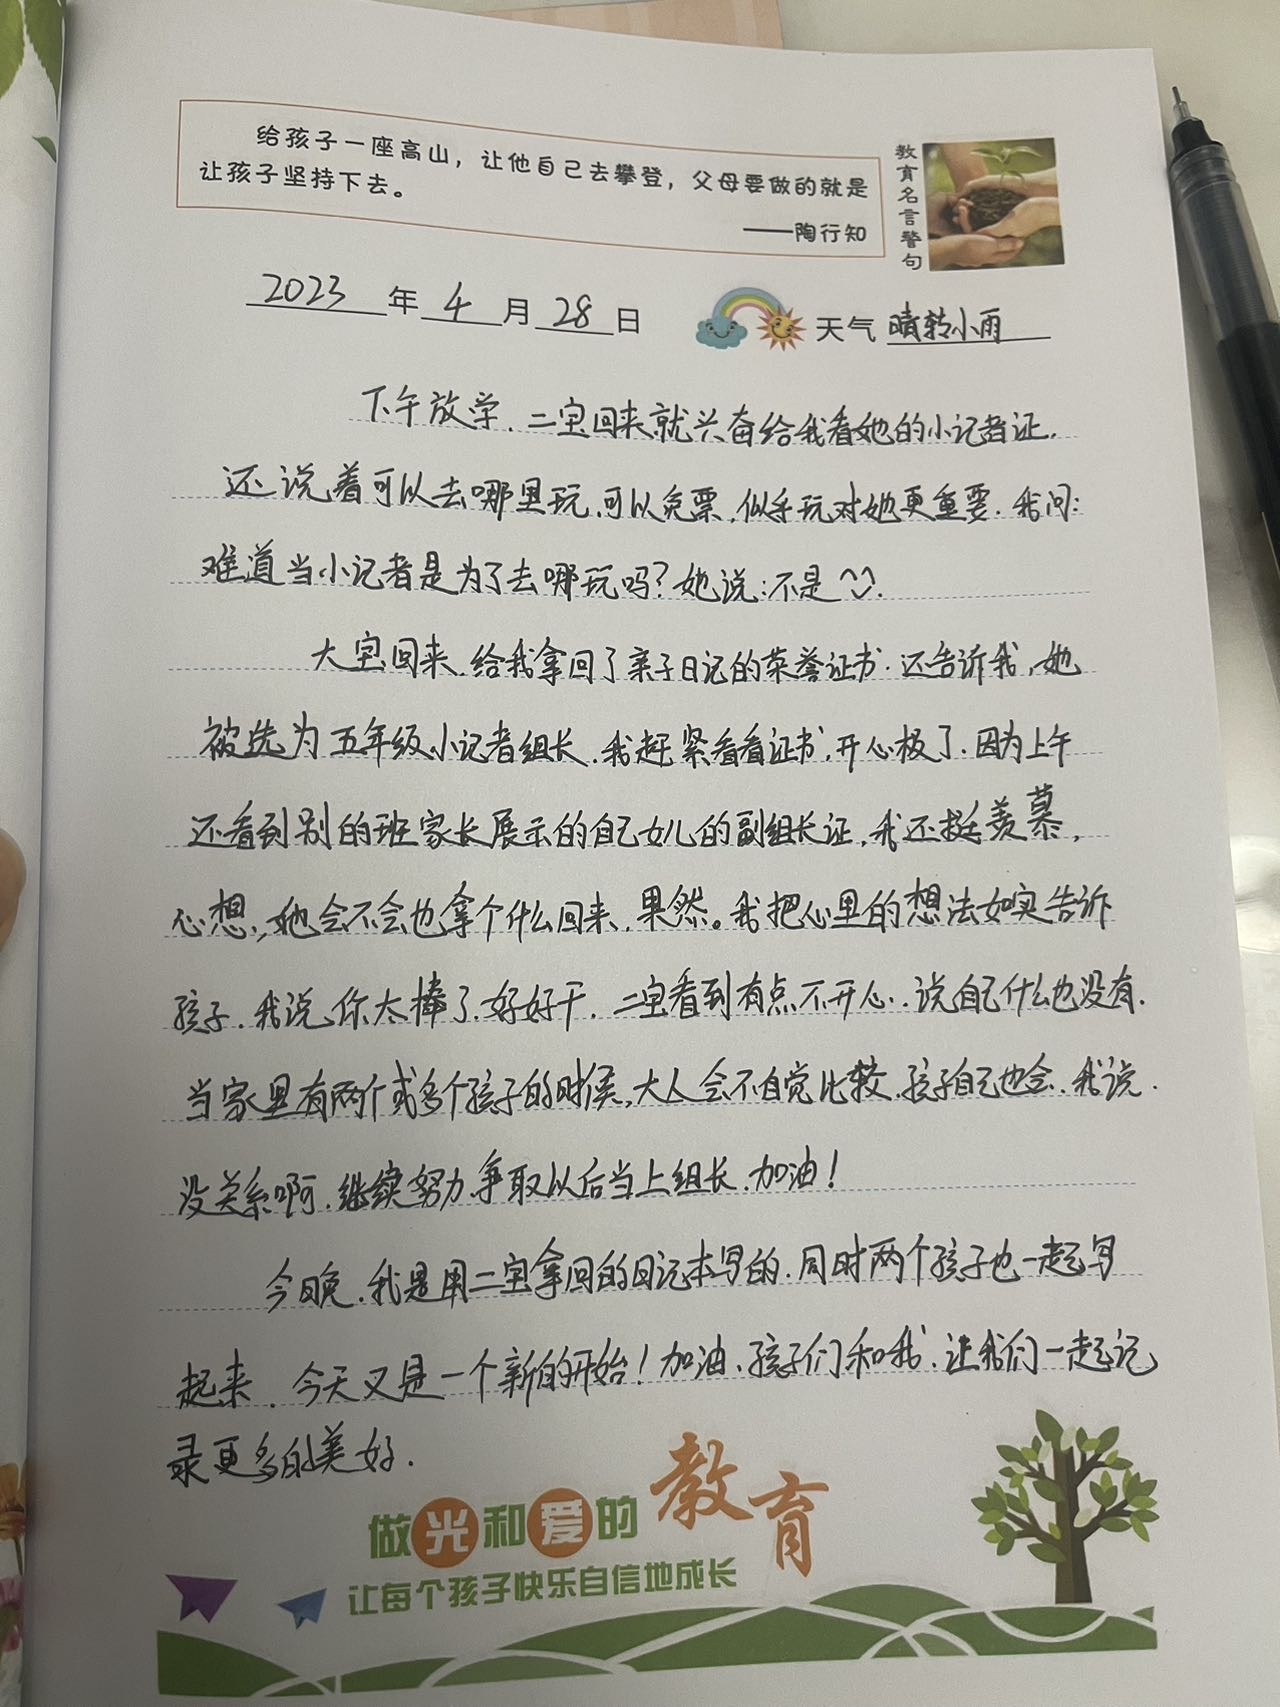 给孩子一座高山，让他自己去攀登，父母要做的就是
让孩子坚持下去。
——陶行知
教育名言警句
2023年4月28日
天气 晴转小雨
下午放学.二宝回来就兴奋给我看她的小记者证.
还说着可以去哪里玩,可以免票,似乎玩对她更重要.我问:
难道当小记者是为了去哪玩吗?她说:不是^^.
大宝回来.给我拿回了亲子日记的荣誉证书.还告诉我,她
被选为五年级小记者组长.我赶紧看看证书,开心极了.因为上午
还看到别的班家长展示的自己女儿的副组长证,我还挺羡慕,
心想,她会不会也拿个什么回来,果然。我把心里的想法如实告诉
孩子.我说,你太棒了.好好干.二宝看到有点不开心.说自己什么也没有.
当家里有两个或多个孩子的时候,大人会不自觉比较.孩子自己也会.我说.
没关系啊.继续努力,争取以后当上组长.加油!
今晚.我是用二宝拿回的日记本写的.同时两个孩子也一起写
起来.今天又是一个新的开始!加油.孩子们和我.让我们一起记
录更多的美好.
做光和爱的教育
让每个孩子快乐自信地成长